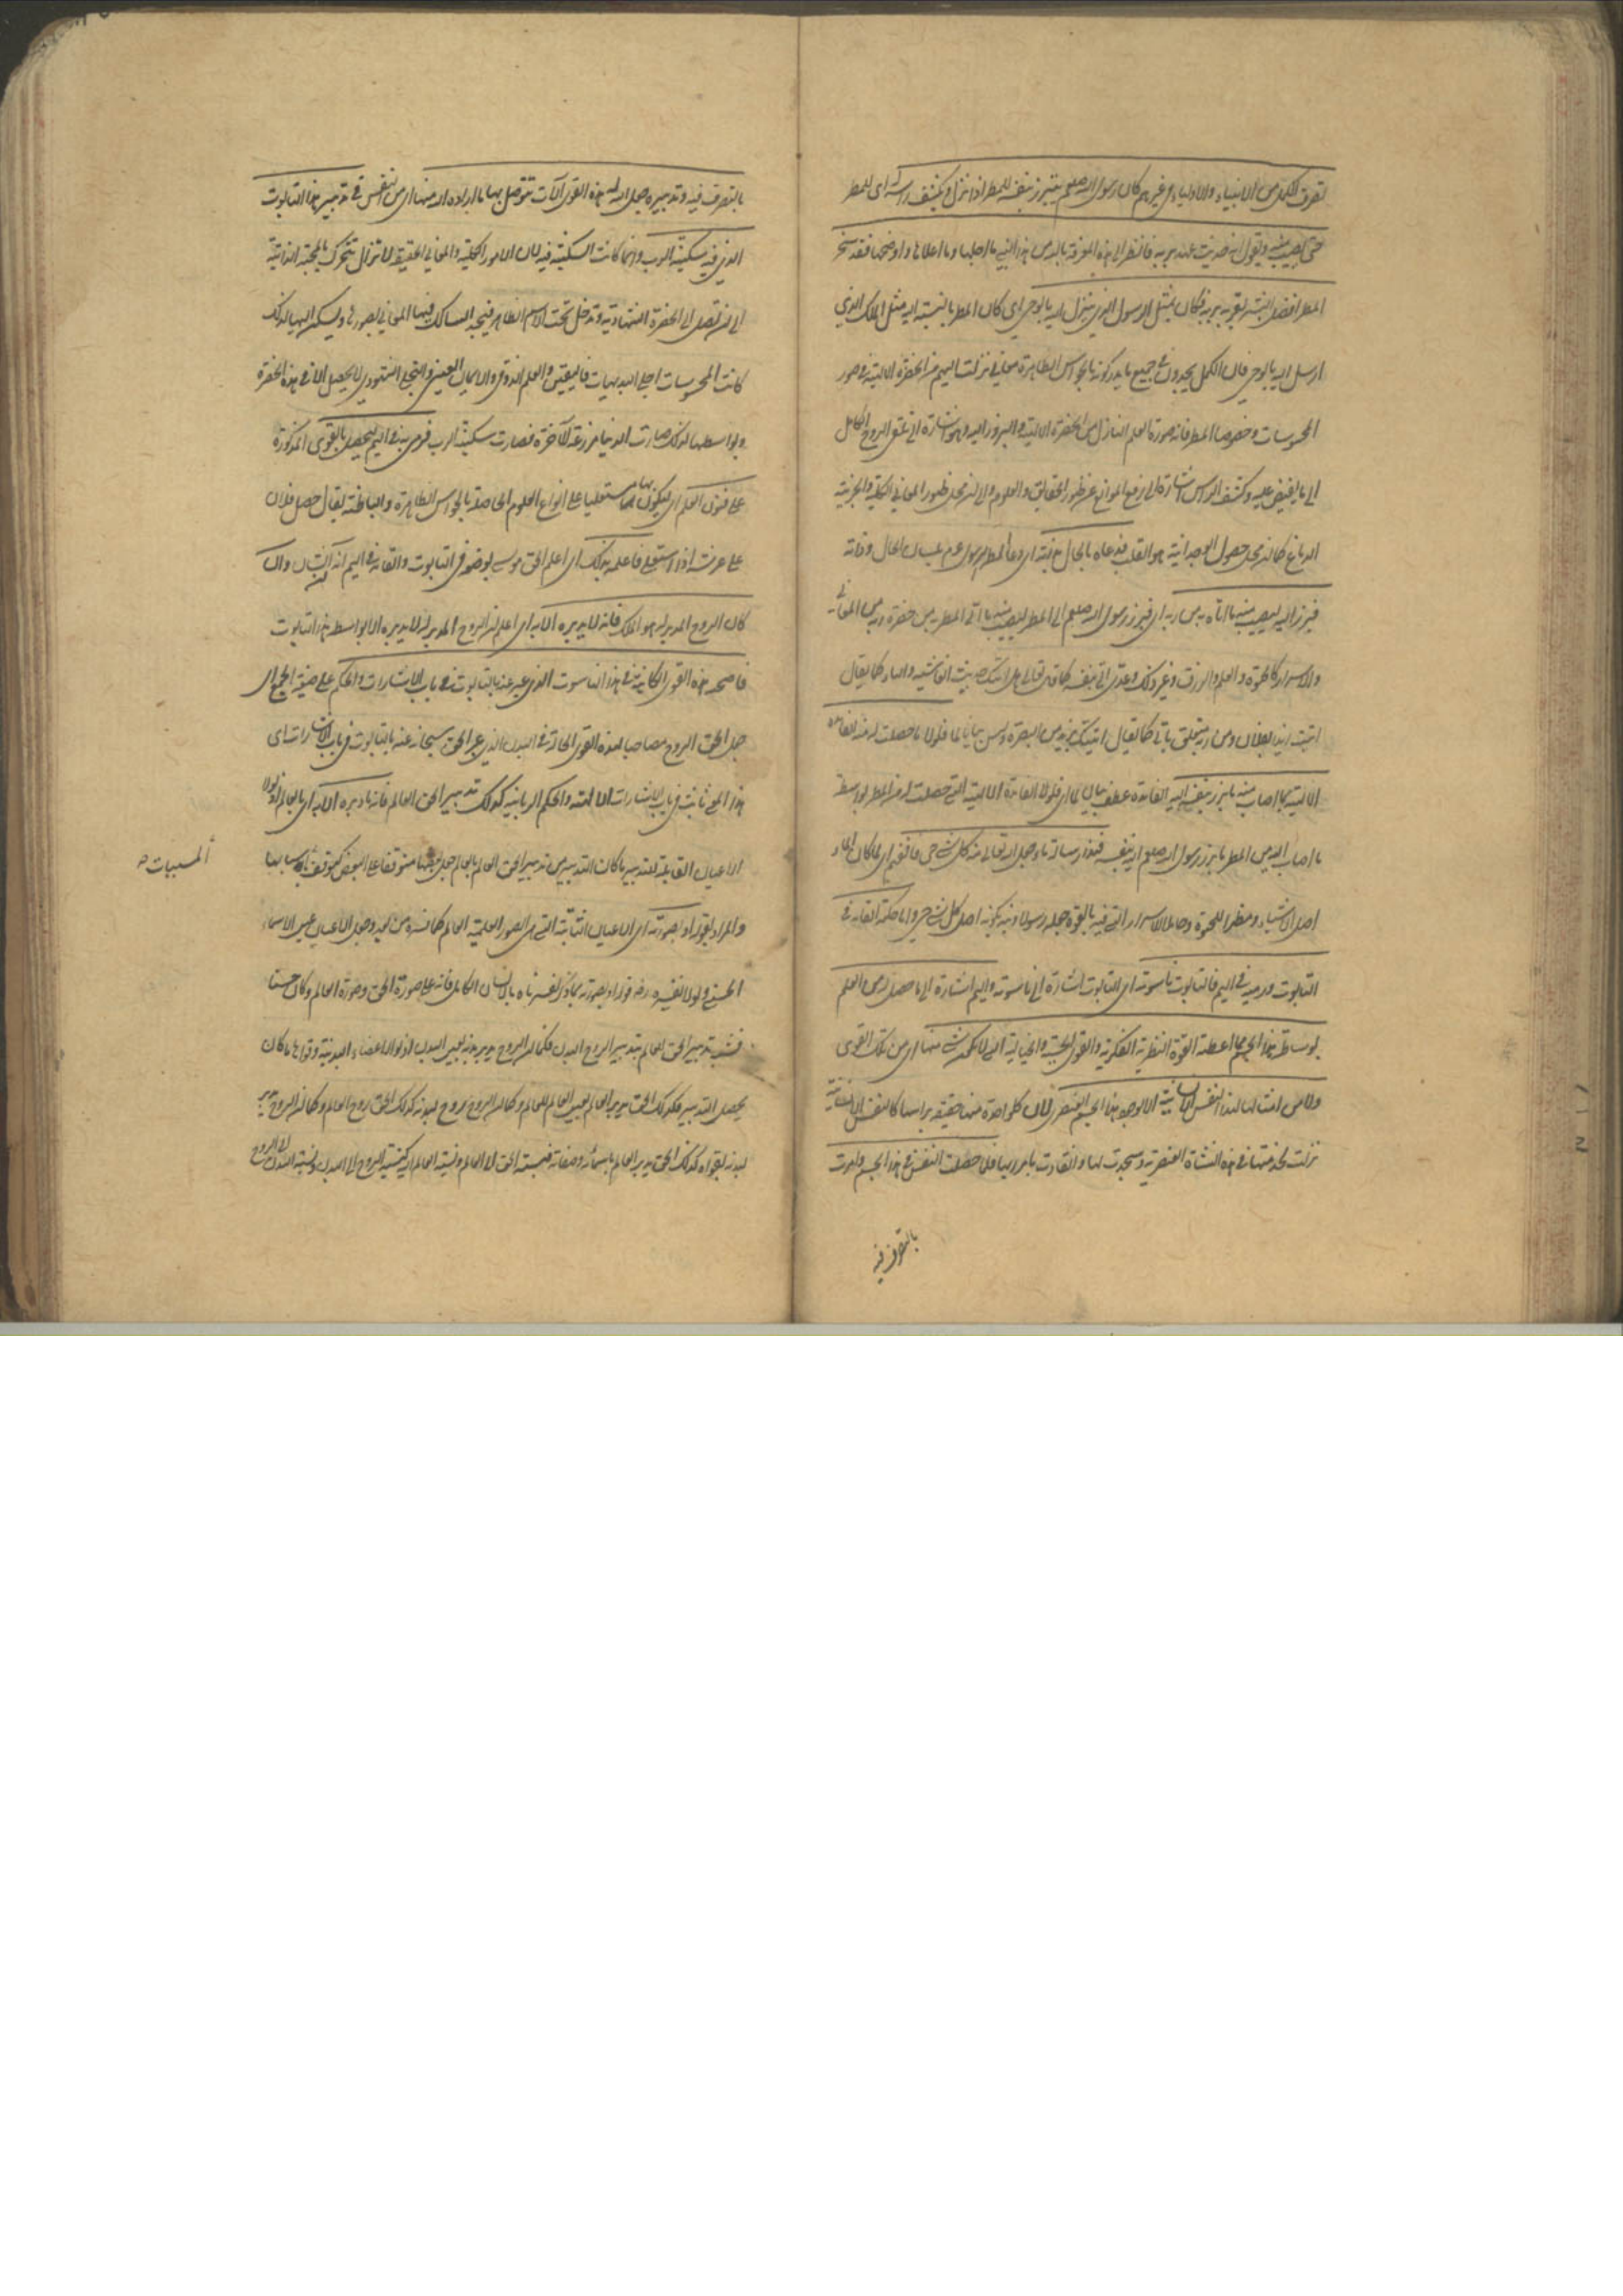 تعرف الكمل من الانبياء والاولياء وغيرهم كان رسول الله صلعم يبرز بنفسه للمطر اذا نزل ويكشف رأسه اى للمطر
حتى يصيب منه ويقول انه حديث عهد بربه فانظر الى هذه المعرفة بالله من هذا النبي ما اجلها وما اعلاها واوضحها فقد سخر
المطر افضل البشر لقربه من ربه فكان مثل الرسول الذي ينزل اليه بالوحى اى كان المطر بالنسبة اليه مثل الملك الذي
ارسل اليه بالوحى فان الكمل يجدون فى جميع ما يدركونه بالحواس الظاهرة معانى نزلت اليهم من الحضرة الالهية فى صور
المحسوسات وخصوصا المطر فانه صورة العلم النازل من الحضرة الالهية والبروز اليه وهو اشارة الى تلقى الروح الكامل
الى ما يفيض عليه وكشف الراس اشارة الى رفع الموانع عن ظهور الحقايق والعلوم والاسرار محل ظهور المعانى الكلية والجزئية
الدماغ كما ان محل حصول الوجدانية هو القلب فدعاه بالحال بذاته اى دعا المطر الرسول عم بلسان الحال وذاته
فبرز اليه ليصيب منه ما اتاه به من ربه اى فبرز رسول الله صلعم الى المطر ليصيب منه ما اتى المطر به من حضرة ربه من المعانى
والاسرار كالحيوة والعلم والرزق وغير ذلك وعدى اتى بنفسه كما قال تعالى هل اتيك حديث الغاشية والباء كما يقال
اتيت زيدا بفلان ومن ربه متعلق باتى كما يقال اتيتك بزيد من البصرة ومن بيان لما فلولا ما حصلت له منه الفائدة
الالهية بما اصاب منه ما برز بنفسه اليه الفائدة عطف بيان لما اى فلولا الفائدة الالهية التى حصلت له من المطر بواسطة
ما اصاب اليه من المطر ما برز رسول الله صلعم اليه بنفسه فهذه رسالة ماء جعل الله تعالى منه كل شئ حى فافهم اى لما كان الماء
اصل الاشياء ومظهرا للحيوة وحاملا لاسرار التى فيه بالقوة جعله رسولا ونبه بكونه اصل كل شئ حى واما حكمة القائه فى
التابوت ورميه فى اليم فالتابوت ناسوته اى التابوت اشارة الى ناسوته واليم اشارة الى ما حصل له من العلم
بوساطة هذا الجسم مما اعطته القوة النظرية الفكرية والقوى الحسية والخيالية التى لا يكون شئ منها اى من تلك القوى
ولا من امثالها لهذا النفس الانسانية الا بوجود هذا الجسم العنصرى لان كل واحدة منها حقيقة براسها كالنفس الانسانية
نزلت لخدمتها فى هذه النشأة العنصرية وسجدت لها وانقادت بامر ربها فلما حصلت النفس فى هذا الجسم وامرت
بالتصرف فيه
بالتصرف فيه وتدبيره جعل الله لها هذه القوى آلات تتوصل بها ما اراده الله منها اى من النفس فى تدبير هذا التابوت
الذى فيه سكينة الرب وانما كانت السكينة فيه لان الامور الكلية والمعانى الحقيقية لا تزال تتحرك بالمحبة الذاتية
الى ان تصل الى الحضرة الشهادية وتدخل تحت الاسم الظاهر فيجد السالك فيها المعانى بصورها ويسكن اليها لذلك
كانت المحسوسات اجلى البديهيات فاليقين والعلم الذوقى والايمان العينى والتجلى الشهودى لا يحصل الا فى هذه الحضرة
وبواسطها لذلك صارت الدنيا مزرعة الآخرة فصارت سكينة الرب فرمى به فى اليم ليحصل بالقوى المذكورة
على فنون العلم اى ليكون بها مستعليا على انواع العلوم الحاصلة بالحواس الظاهرة والباطنة يقال حصل فلان
على عرشه اذا استعلى فاعلمه بذلك اى اعلم الحق موسى بوضعه فى التابوت والقائه فى اليم انه الشان وان
كان الروح المدبر له هو الملك فانه لا يدبره الا به اى اعلم ان الروح المدبر له لا يدبره الا بواسطة هذا التابوت
فاصحبه هذه القوى الكائنة فى هذا الناسوت الذى عبر عنه بالتابوت فى باب الاشارات والحكم على صيغة الجمع اى
جعل الحق الروح مصاحبا لهذه القوى الحالة فى البدن الذى عبر الحق سبحانه عنه بالتابوت فى باب الاشارات اى
هذا المعنى ثابت فى باب الاشارات الالهية والحكم الربانية كذلك تدبير الحق العالم فانه ما دبره الا به اى بالعالم اذ لولا
الاعيان القابلة للتدبير ما كان التدبير من تدبير الحق العالم بالعالم جعل بعضها متوقفا على البعض كتوقف باسبابها
المسببات
والمراد بقوله او بصورته اى الاعيان الثابتة التى هى الصور العلمية للعالم كما فسره من بعد وجعل الاعيان عين الاسماء
الحسنى ولولا تفسيره رضه قوله او بصورته بما ذكر لفسرناه بالانسان الكامل فانه على صورة الحق وصورة العالم وكان حسنا
فشبه تدبير الحق العالم بتدبير الروح البدن فكما ان الروح يدبر بدنه بعين البدن اذ لولا الاعضاء البدنية وقواها ما كان
يحصل التدبير فكذلك الحق يدبر العالم بعين العالم للعالم وكما ان الروح روح لبدنه كذلك الحق روح العالم وكما ان الروح يدبر
لبدنه بقواه كذلك الحق يدبر العالم باسمائه وصفاته فنسبة الحق الى العالم ونسبة العالم اليه كنسبة الروح الى البدن ونسبة البدن الى الروح